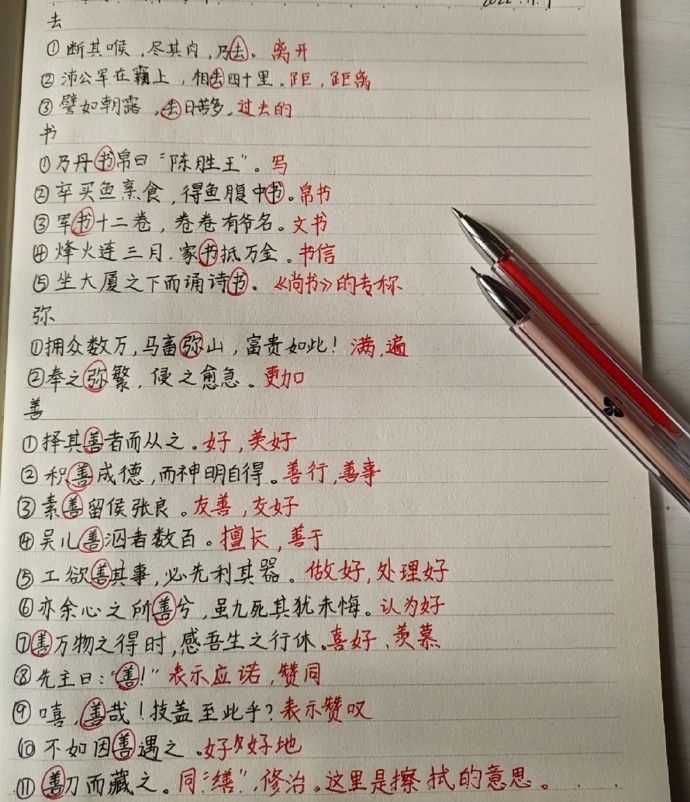 2022.11.1
去
①断其喉,尽其肉,乃去。离开
②沛公军在霸上,相去四十里。距,距离
③譬如朝露,去日苦多。过去的
书
①乃丹书帛曰“陈胜王”。写
②卒买鱼烹食,得鱼腹中书。帛书
③军书十二卷,卷卷有爷名。文书
④烽火连三月,家书抵万金。书信
⑤坐大厦之下而诵诗书。《尚书》的专称
弥
①拥众数万,马畜弥山,富贵如此!满,遍
②奉之弥繁,侵之愈急。更加
善
①择其善者而从之。好,美好
②积善成德,而神明自得。善行,善事
③素善留侯张良。友善,交好
④吴儿善泅者数百。擅长,善于
⑤工欲善其事,必先利其器。做好,处理好
⑥亦余心之所善兮,虽九死其犹未悔。认为好
⑦善万物之得时,感吾生之行休。喜好、羡慕
⑧先主曰:“善!”表示应诺,赞同
⑨嘻,善哉!技盖至此乎?表示赞叹
⑩不如因善遇之。好好地
⑪善刀而藏之。同“缮”,修治。这里是擦拭的意思。